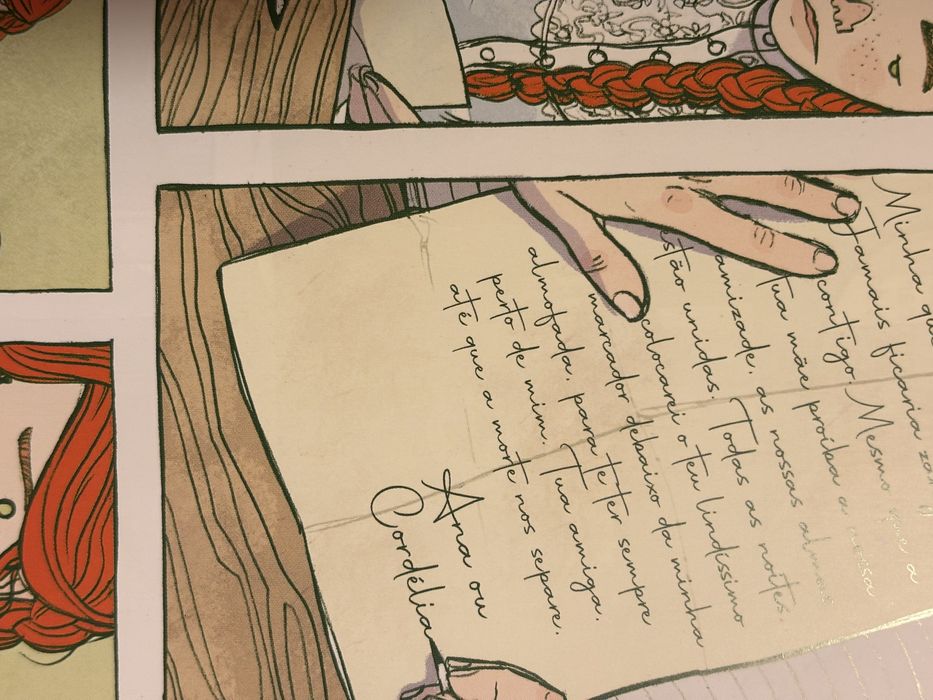 Minha
Jamais ficaria
contigo. Mesmo que a
tua mãe proíba a nossa
amizade, as nossas almas
estão unidas. Todas as noites,
colocarei o teu lindíssimo
marcador debaixo da minha
almofada, para te ter sempre
perto de mim. Tua amiga,
até que a morte nos separe.
Ana ou
Cordélia